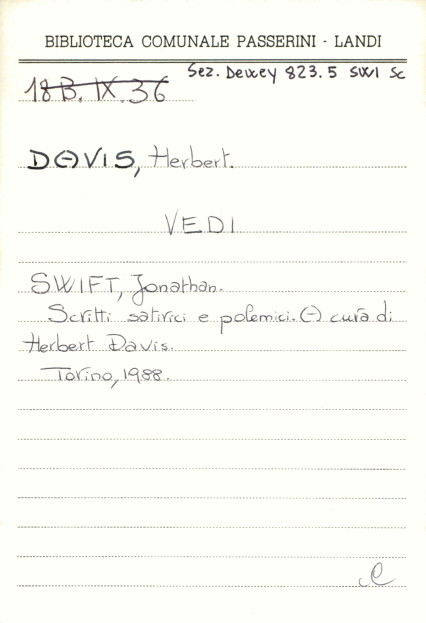 BIBLIOTECA COMUNALE PASSERINI - LANDI
Sez. Dewey 823.5 SWI Sc
18B.IX.36
DAVIS, Herbert.
VEDI
SWIFT, Jonathan.
Scritti satirici e polemici. A cura di
Herbert Davis.
Torino, 1988.